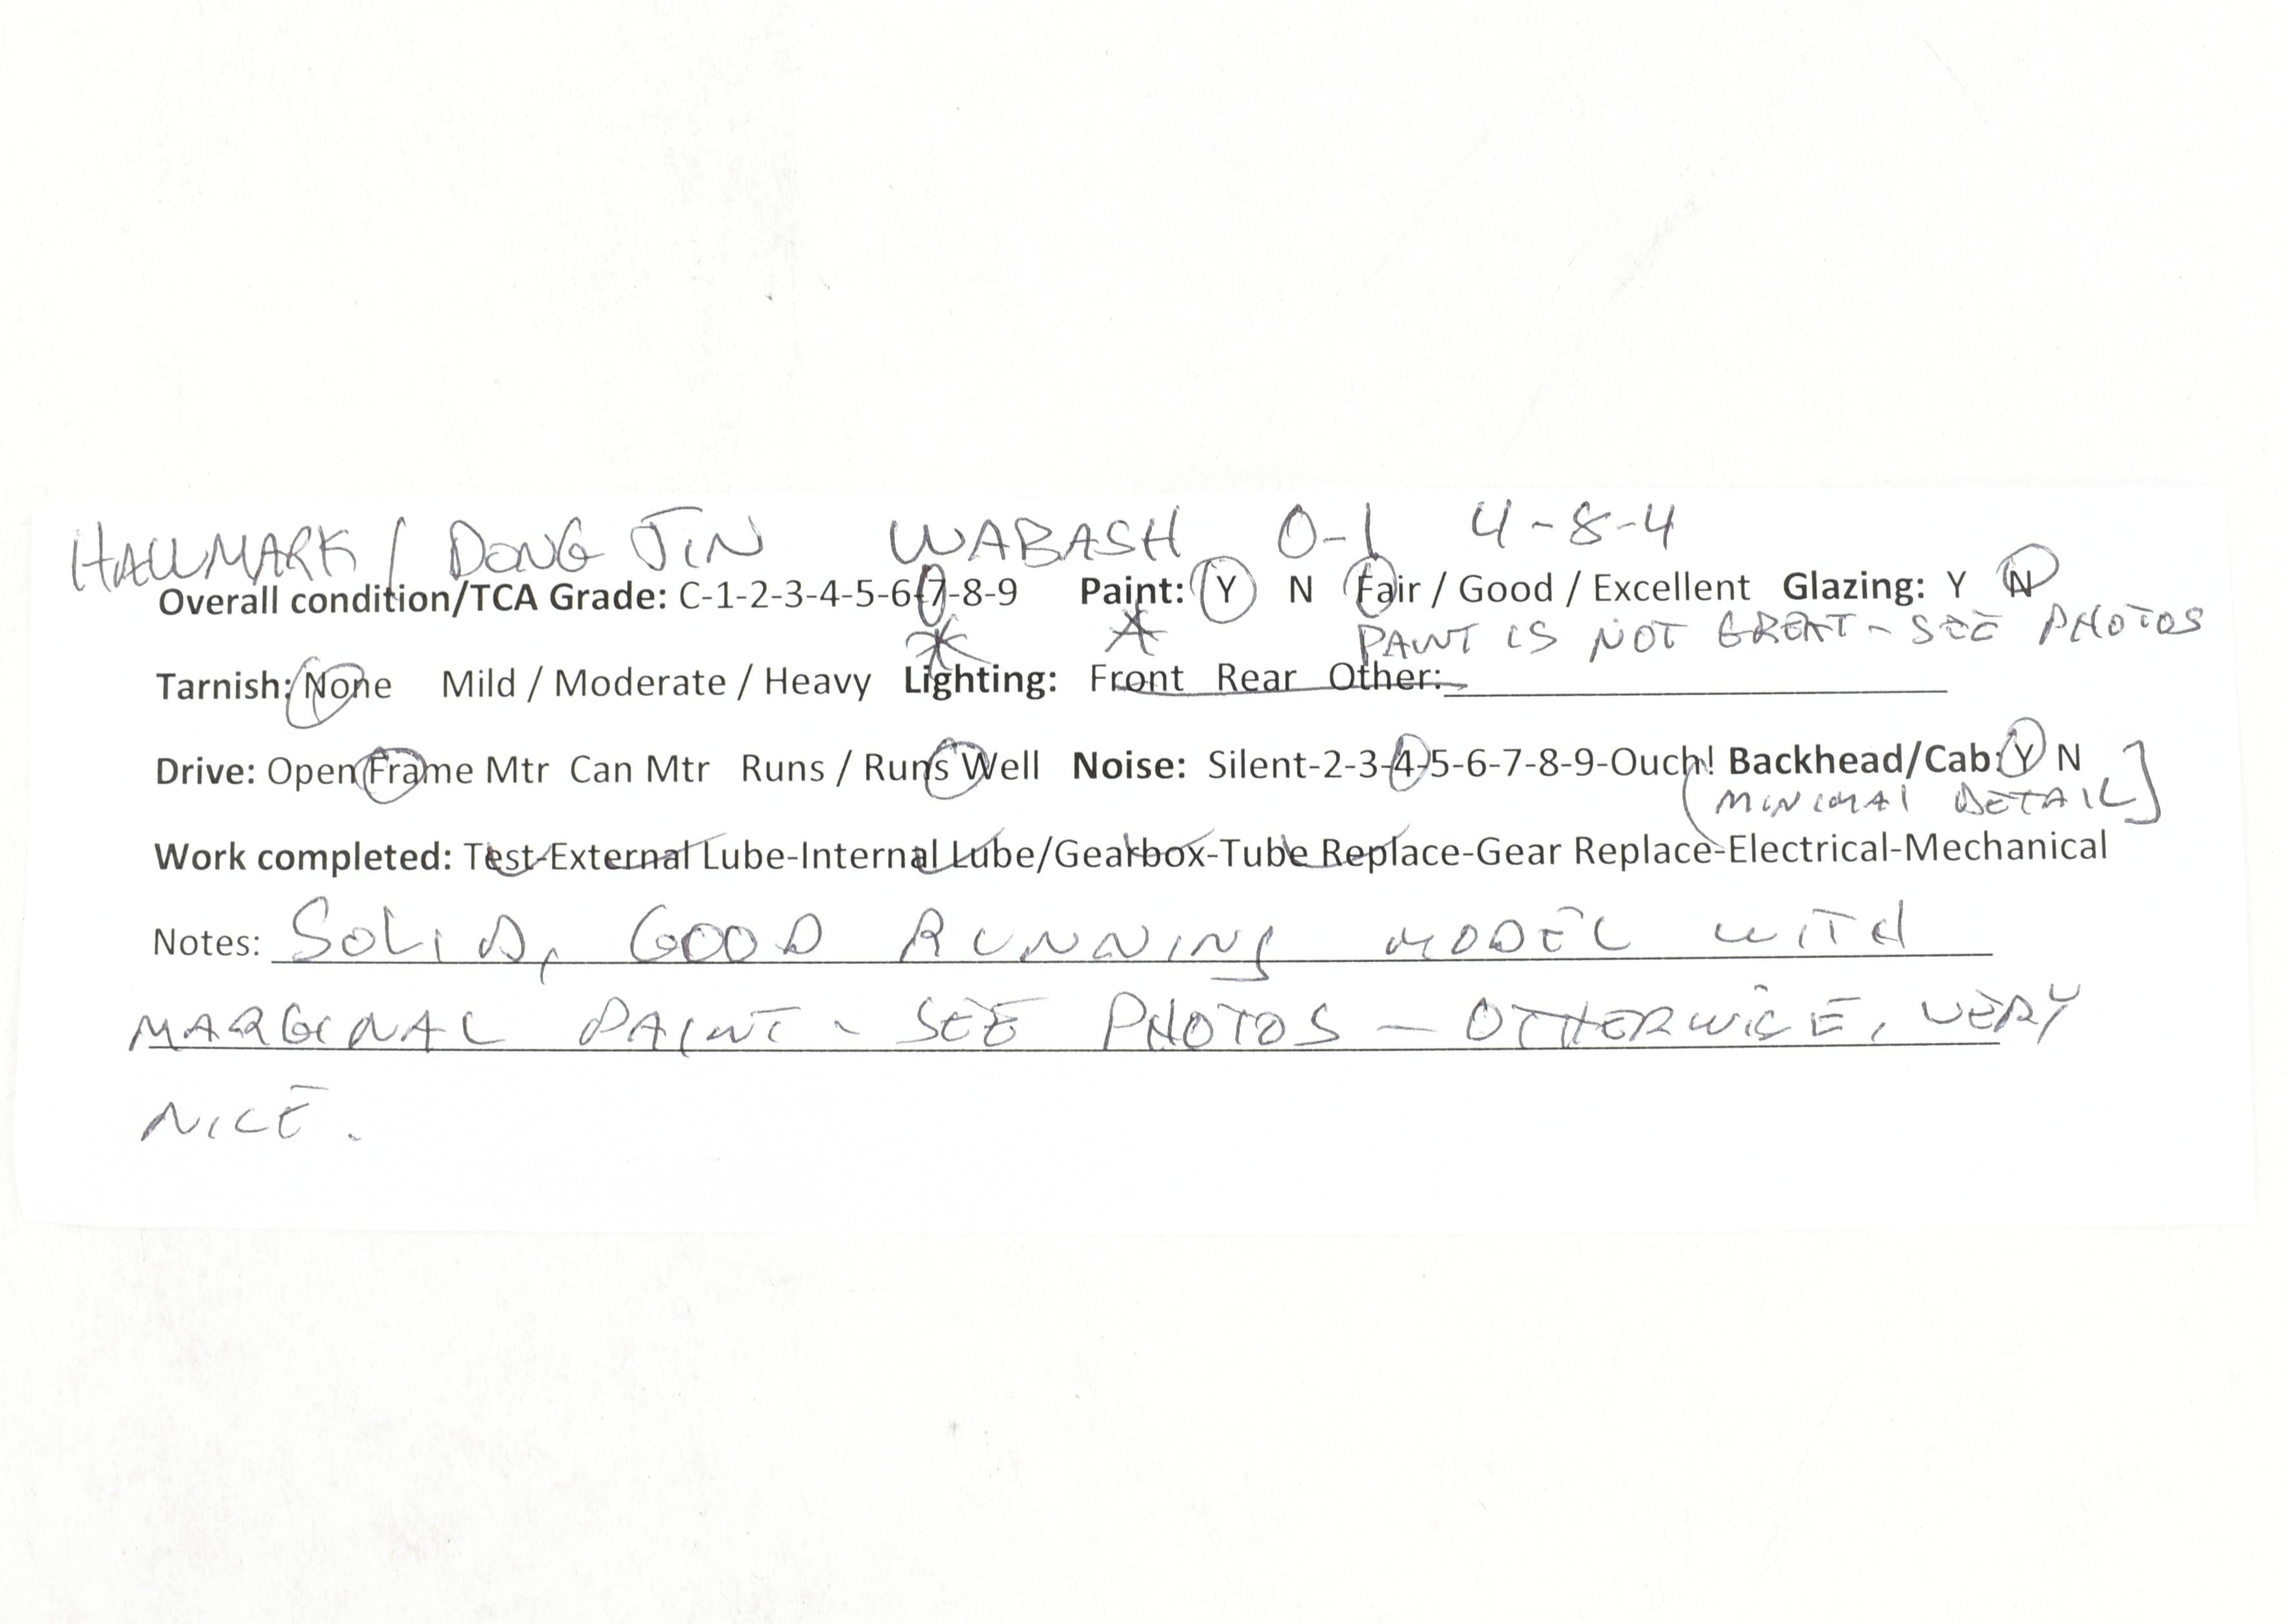 HALLMARK / DONG JIN WABASH O-1 4-8-4
Overall condition/TCA Grade: C-1-2-3-4-5-6-7-8-9 Paint: Y N Fair / Good / Excellent Glazing: Y N
PAINT IS NOT GREAT - SEE PHOTOS
Tarnish: None Mild / Moderate / Heavy Lighting: Front Rear Other:
Drive: Open Frame Mtr Can Mtr Runs / Runs Well Noise: Silent-2-3-4-5-6-7-8-9-Ouch! Backhead/Cab: Y N
(MINIMAL DETAIL]
Work completed: Test-External Lube-Internal Lube/Gearbox-Tube Replace-Gear Replace-Electrical-Mechanical
Notes: SOLID, GOOD RUNNING MODEL WITH
MARGINAL PAINT - SEE PHOTOS - OTHERWISE, VERY
NICE.